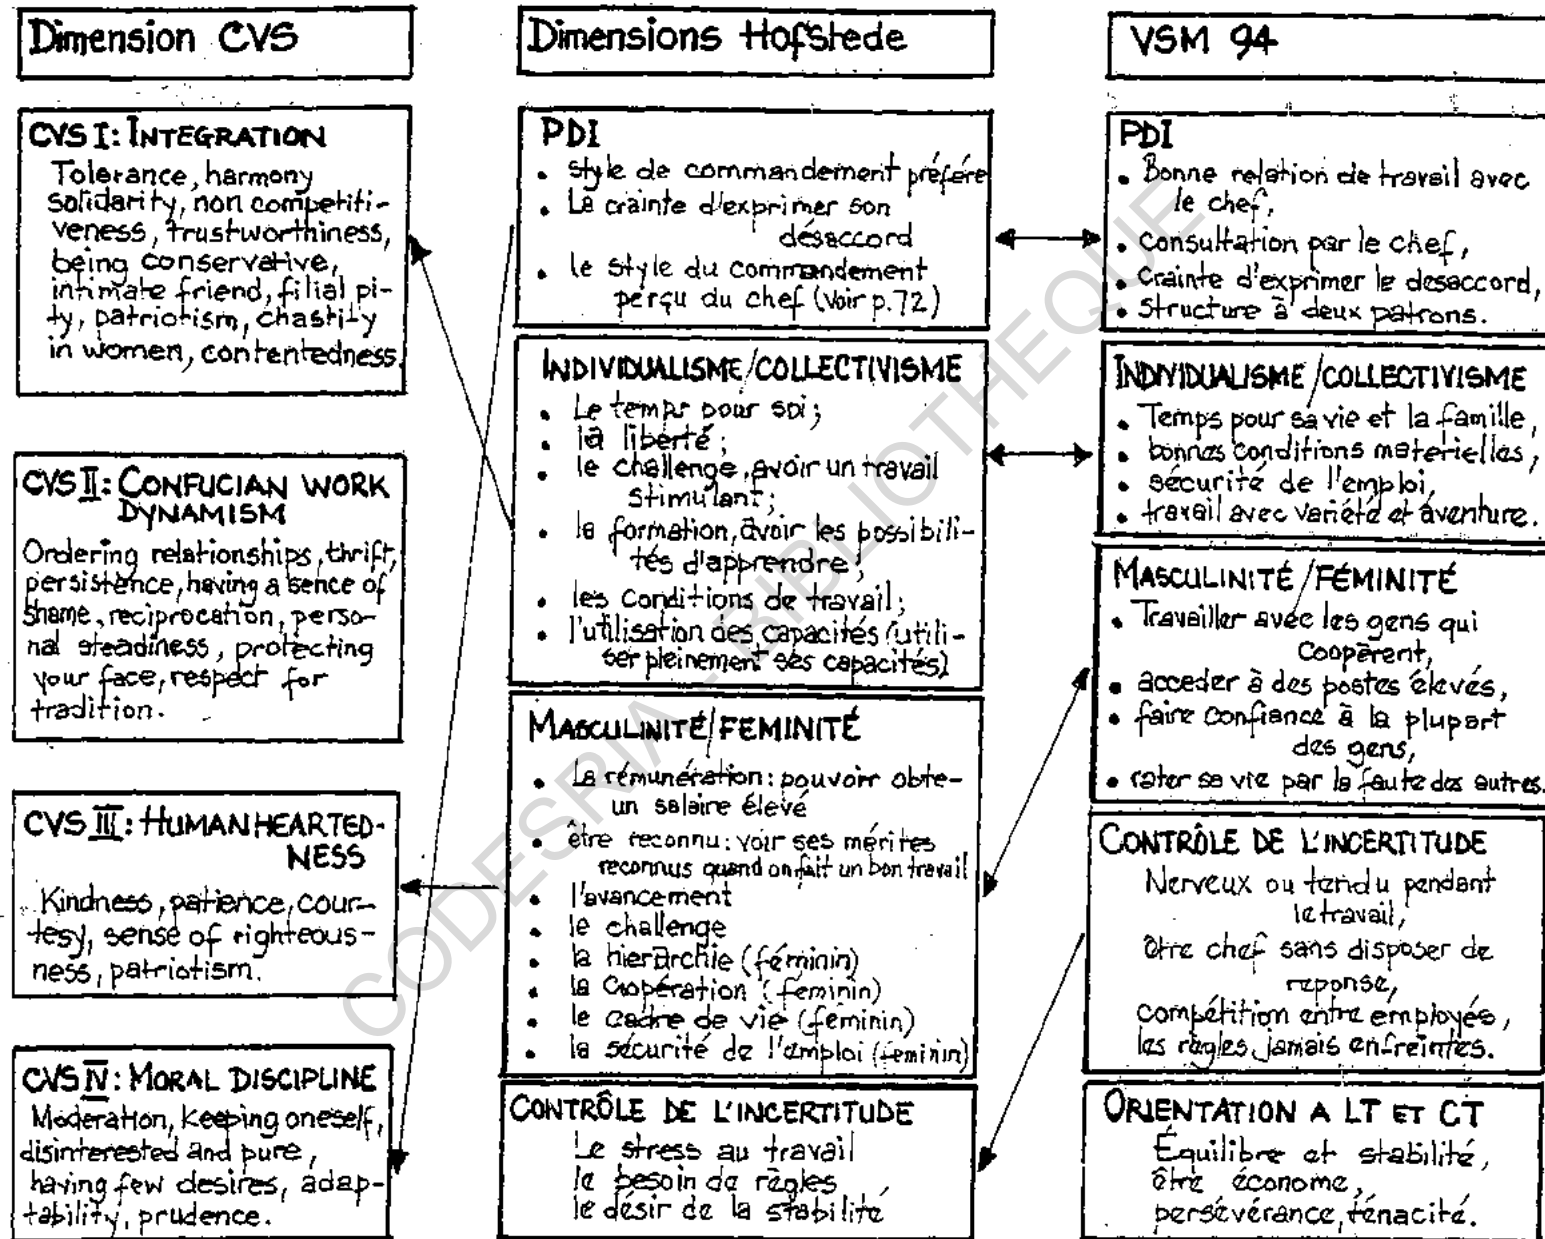 Dimension CVS
CVS I: INTEGRATION
Tolerance, harmony
solidarity, non competiti-
veness, trustworthiness,
being conservative,
intimate friend, filial pi-
ty, patriotism, chastity
in women, contentedness.
CVS II: CONFUCIAN WORK
DYNAMISM
Ordering relationships, thrift,
persistence, having a sence of
shame, reciprocation, perso-
nal steadiness, protecting
your face, respect for
tradition.
CVS III: HUMAN HEARTED-
NESS
Kindness, patience, cour-
tesy, sense of righteous-
ness, patriotism.
CVS IV: MORAL DISCIPLINE
Moderation, keeping oneself,
disinterested and pure,
having few desires, adap-
tability, prudence.
Dimensions Hofstede
PDI
• style de commandement préféré
• La crainte d'exprimer son
désaccord
• le style du commandement
perçu du chef (Voir p.72)
INDIVIDUALISME/COLLECTIVISME
• Le temps pour soi;
• la liberté;
• le challenge, avoir un travail
stimulant;
• la formation, avoir les possibili-
tés d'apprendre;
• les Conditions de travail;
• l'utilisation des capacités (utili-
ser pleinement ses capacités)
MASCULINITÉ/FEMINITÉ
• La rémunération: pouvoir obte-
un salaire élevé
• être reconnu: voir ses mérites
reconnus quand on fait un bon travail
• l'avancement
• le challenge
• la hierarchie (féminin)
• la Coopération (feminin)
• le cadre de vie (feminin)
• la sécurité de l'emploi (feminin)
CONTRÔLE DE L'INCERTITUDE
Le stress au travail
le besoin de règles
le désir de la stabilité
VSM 94
PDI
• Bonne relation de travail avec
le chef,
• Consultation par le chef,
• Crainte d'exprimer le desaccord,
• Structure à deux patrons.
INDIVIDUALISME/COLLECTIVISME
• Temps pour sa vie et la famille,
• bonnes conditions materielles,
• sécurité de l'emploi,
• travail avec variété et aventure.
MASCULINITÉ/FÉMINITÉ
• Travailler avec les gens qui
Coopèrent,
• acceder à des postes élevés,
• faire confiance à la plupart
des gens,
• rater sa vie par la faute des autres.
CONTRÔLE DE L'INCERTITUDE
Nerveux ou tendu pendant
le travail,
être chef sans disposer de
reponse,
compétition entre employés,
les règles jamais enfreintes.
ORIENTATION A LT ET CT
Équilibre et stabilité,
être économe,
persévérance, ténacité.
CODESRIA - BIBLIOTHEQUE